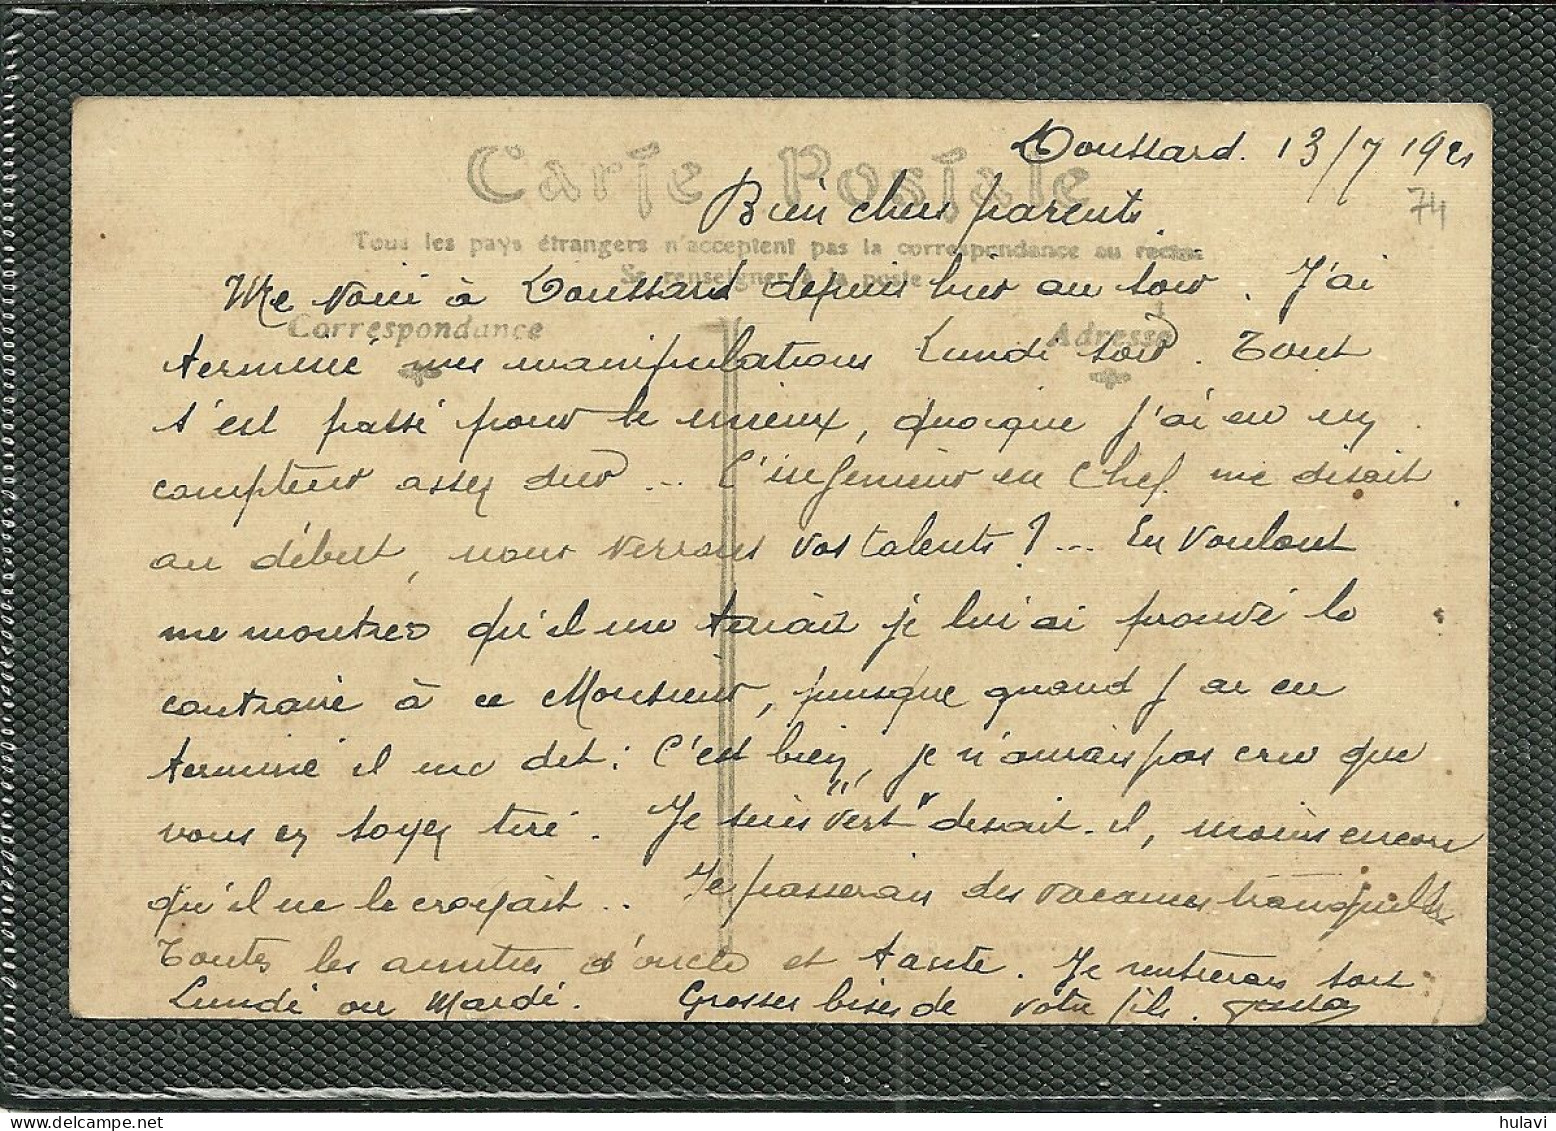 Doussard. 13/7 1921
74
Carte Postale
Bien chers parents
Tous les pays étrangers n'acceptent pas la correspondance au recto
Se renseigner à la poste
Me voici à Doussard depuis hier au soir. J'ai
Correspondance
Adresse
terminé mes manipulations Lundi soir. Tout
s'est passé pour le mieux, quoique j'ai eu un
compteur assez dur... L'ingénieur en chef me disait
au début, nous verrons vos talents ?... En voulant
me montrer qu'il me tenait je lui ai prouvé le
contraire à ce Monsieur, puisque quand j'ai eu
terminé il me dit : C'est bien, je n'aurais pas cru que
vous en soyez tiré. Je suis "vert" disait-il, moins encore
qu'il ne le croyait.. Je passerais des vacances tranquilles
Toutes les amitiés d'oncle et tante. Je rentrerais soit
Lundi ou Mardi. Grosses bises de votre fils.
hulavi